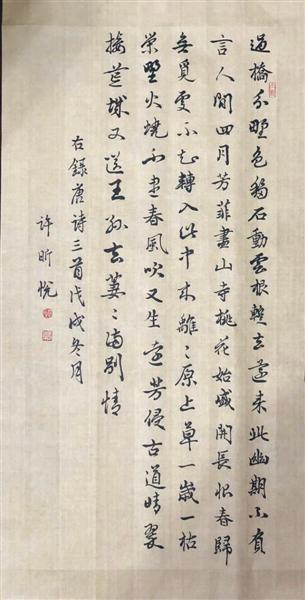 過橋分野色移石動雲根暫去還来此幽期不負
言人間四月芳菲盡山寺桃花始盛開長恨春歸
無覓處不知轉入此中来離〻原上草一歲一枯
榮野火燒不盡春風吹又生遠芳侵古道晴翠
接荒城又送王孫去萋〻滿別情
右錄唐詩三首戊戌冬月
許昕悅